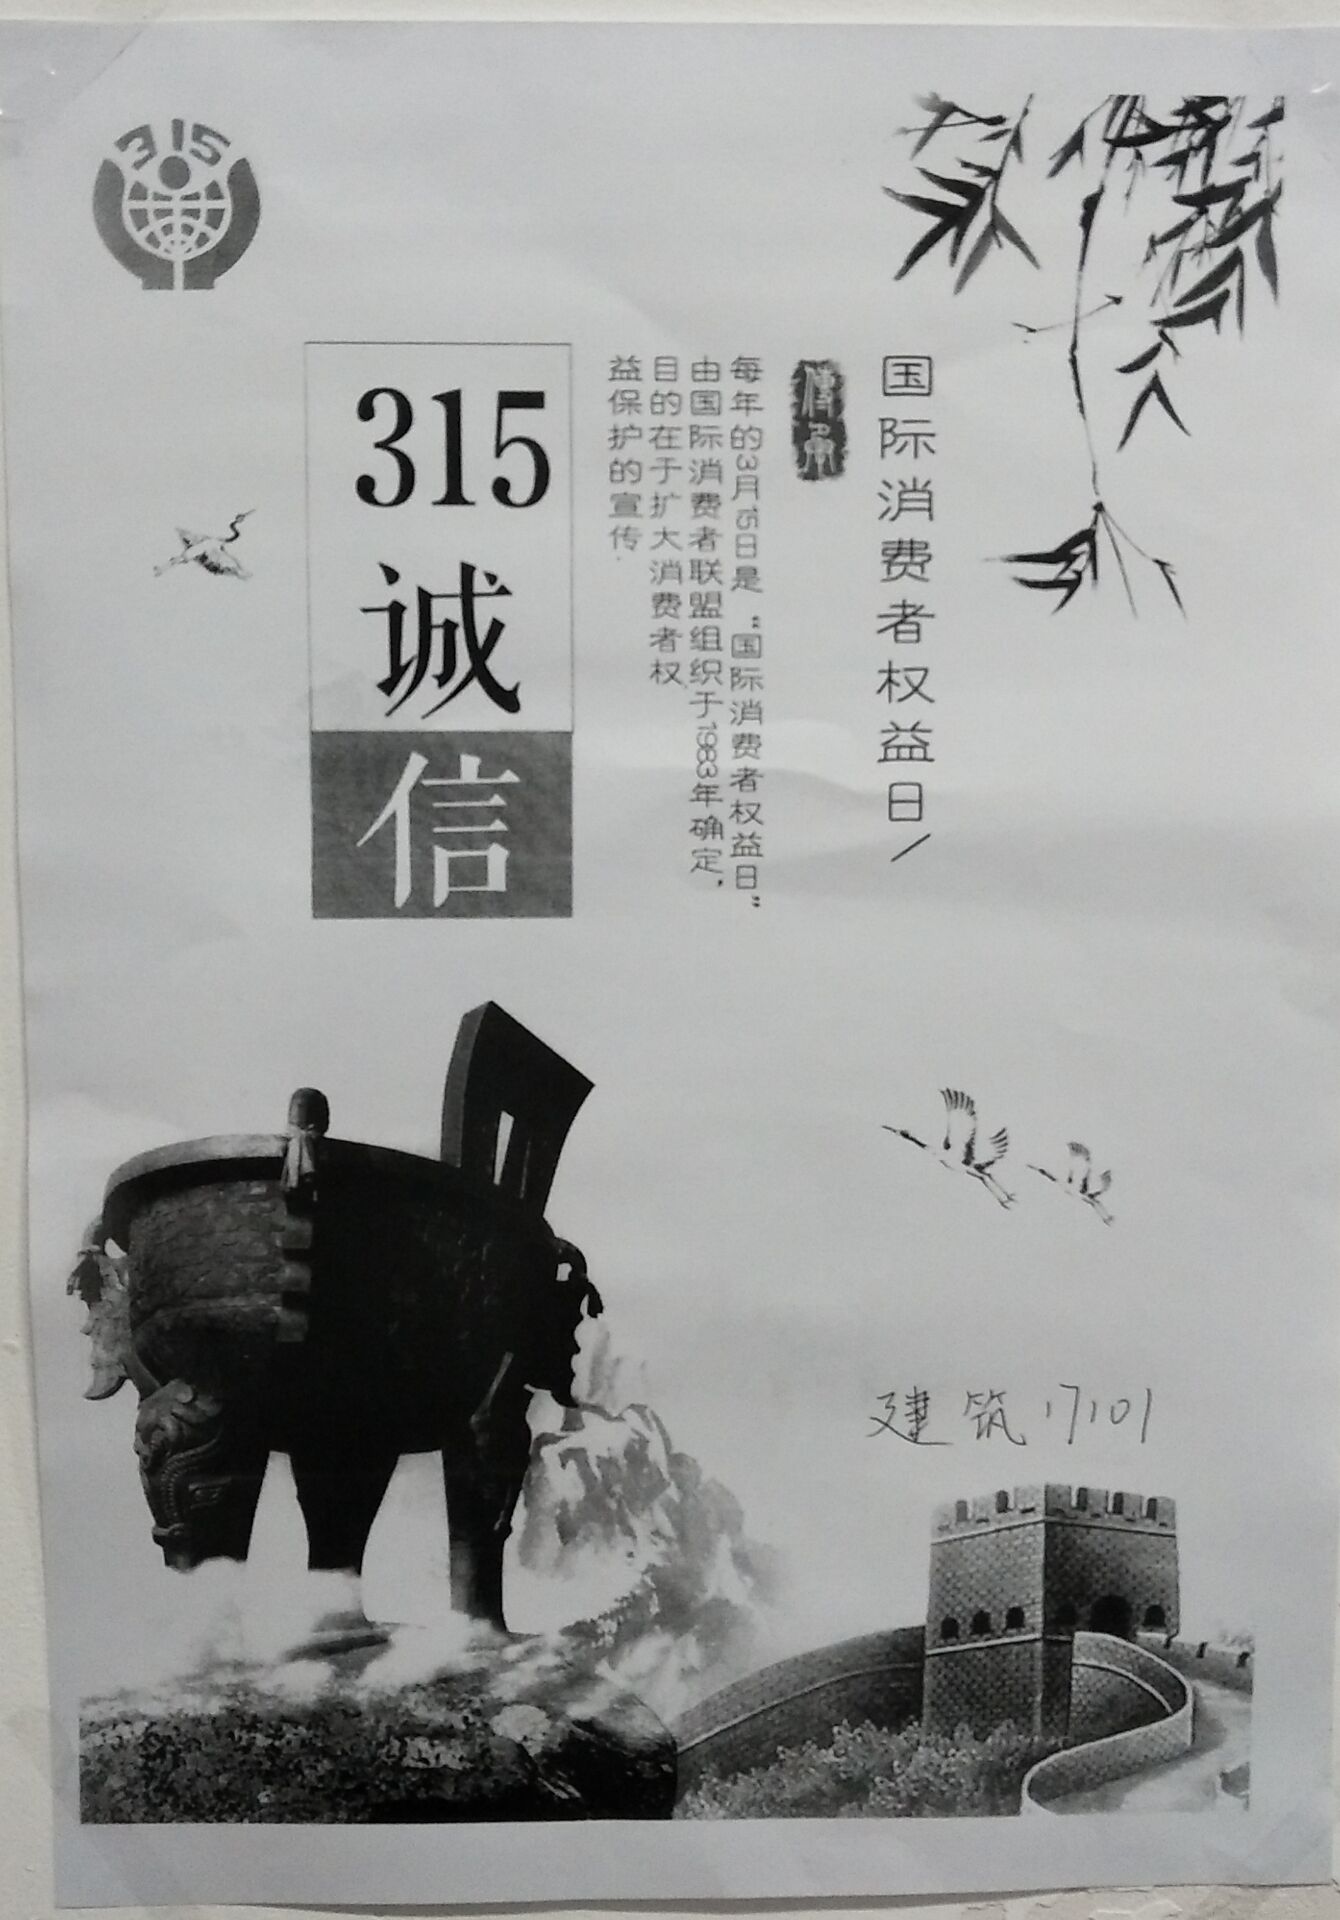 315
国际消费者权益日/
传承
每年的3月15日是“国际消费者权益日”
由国际消费者联盟组织于1983年确定,
目的在于扩大消费者权
益保护的宣传.
315
诚
信
建筑17101